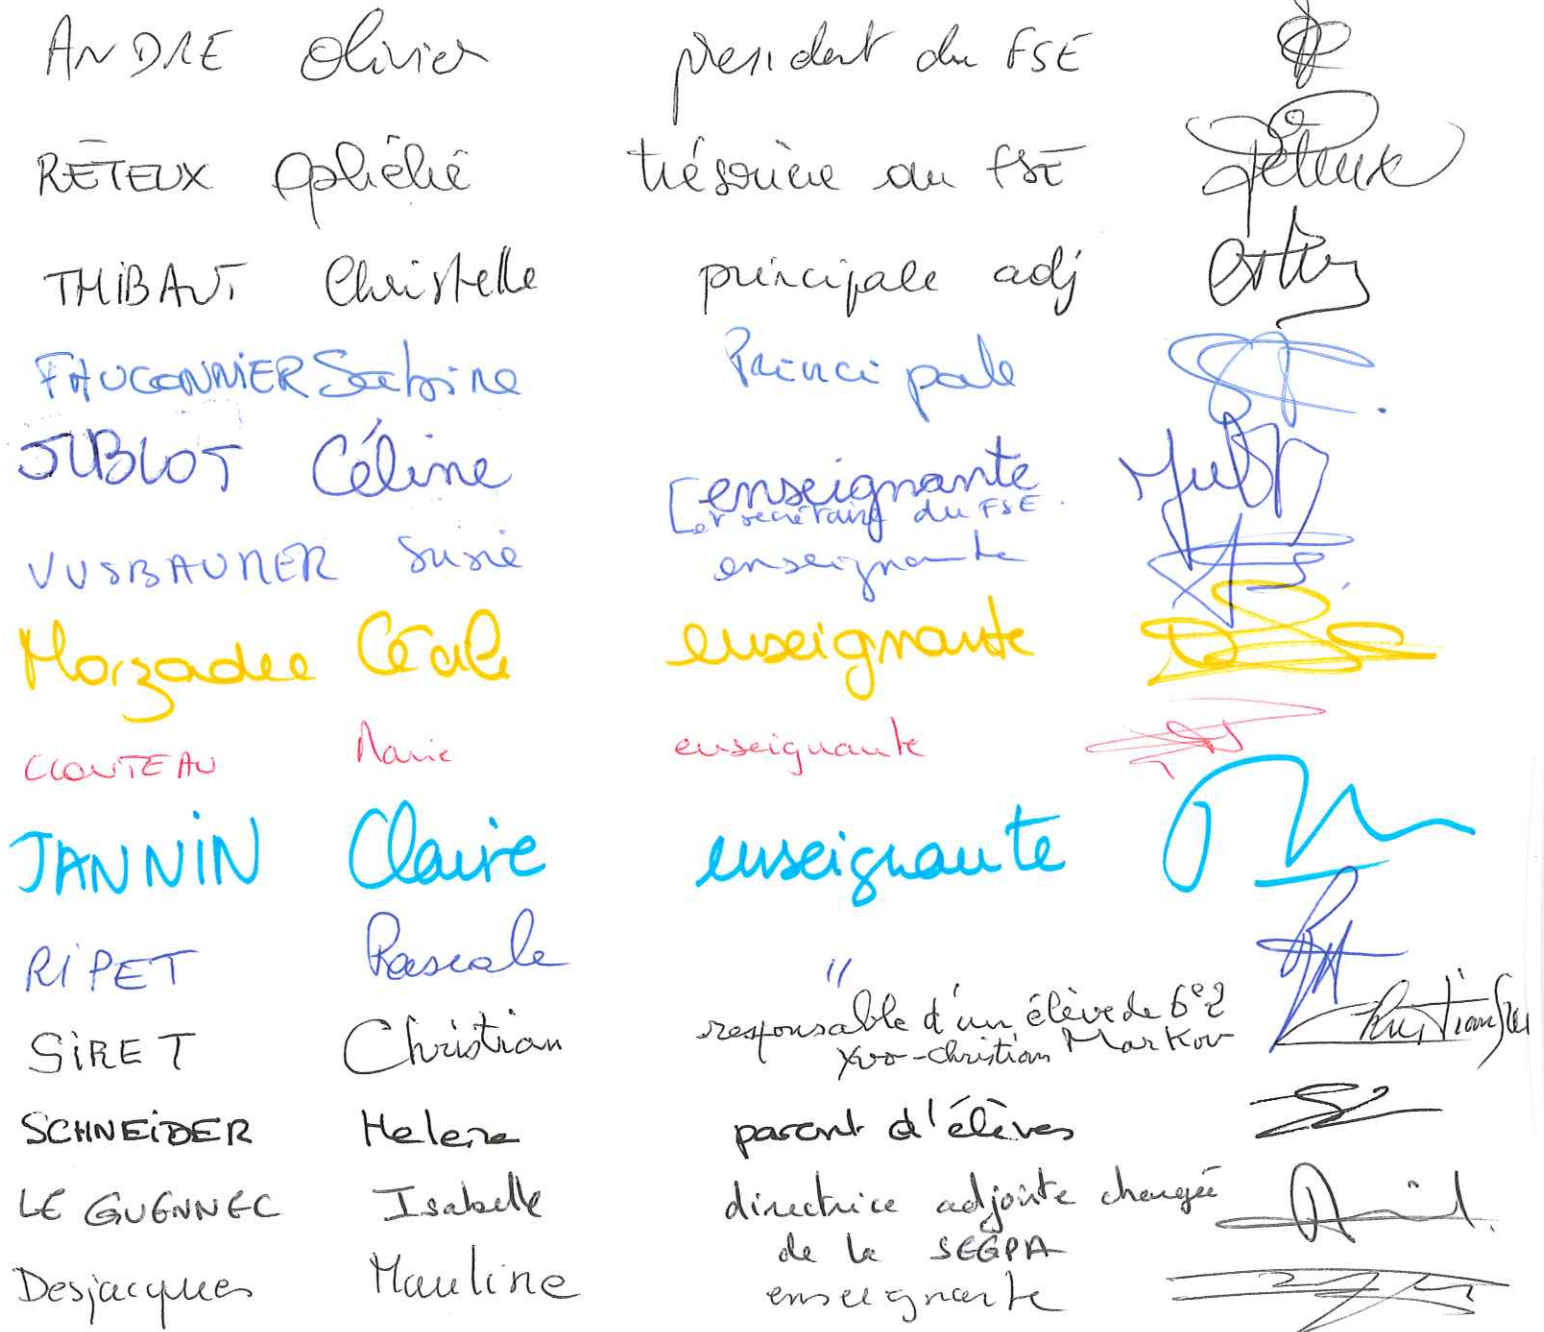 ANDRE Olivier président du FSE
RÉTEUX Ophélie trésorière du FSE
THIBAUT Christelle principale adj
FAUCONNIER Sabine Principale
JUBLOT Céline [enseignante
et secrétaire du FSE.
Susie enseignante
Morzadec Cécile enseignante
CLOUTEAU Marie enseignante
JANNIN Claire enseignante
RIPET Pascale "
SIRET Christian responsable d'un élève de 6e2
Yvo-Christian Markov
SCHNEIDER Helene parent d'élèves
LE GUENNEC Isabelle directrice adjointe chargée
de la SEGPA
Desjacques Mauline enseignante